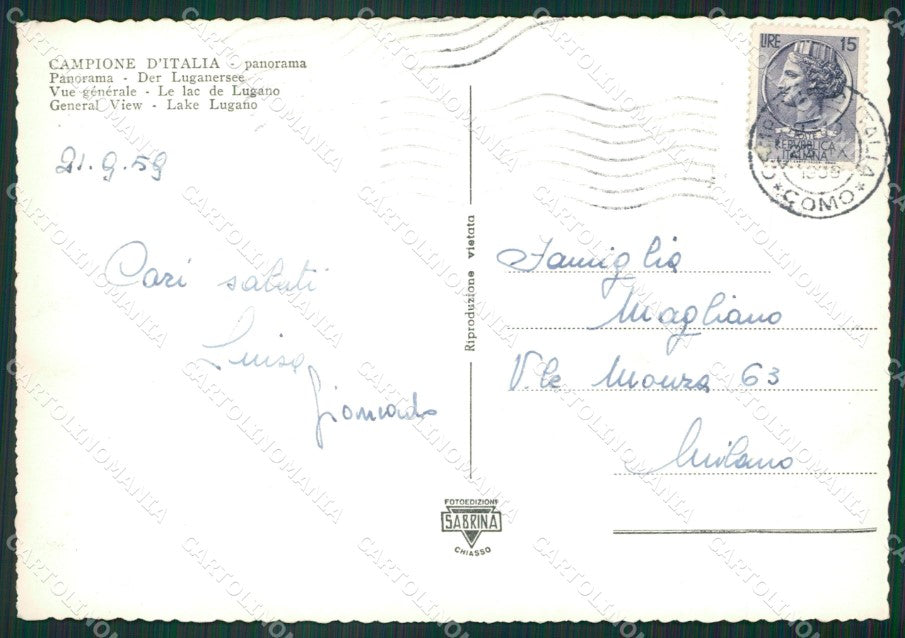 CAMPIONE D'ITALIA - panorama
Panorama - Der Luganersee
Vue générale - Le lac de Lugano
General View - Lake Lugano
21.9.59
Cari saluti
Luisa
Giancarlo
Reproduzione vietata
FOTOEDIZIONI
SABRINA
CHIASSO
LIRE 15
REPUBBLICA
ITALIANA
*COMO*
Famiglia
Magliano
V.le Monza 63
Milano
CARTOLINOMANIA